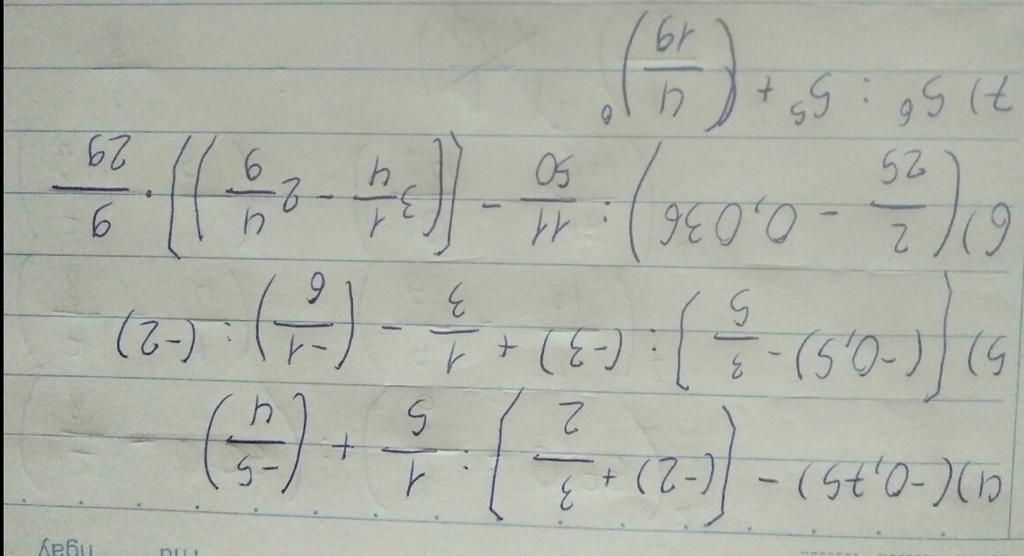 ngay
4) (-0,75) - [(-2) + 3/2] : 1/5 + (-5/4)
5) [(-0,5) - 3/5] : (-3) + 1/3 - (-1/6) : (-2)
6) (2/25 - 0,036) : 11/50 - [(3 1/4 - 2 4/9)] . 9/29
7) 5⁶ : 5⁵ + (4/19)⁰